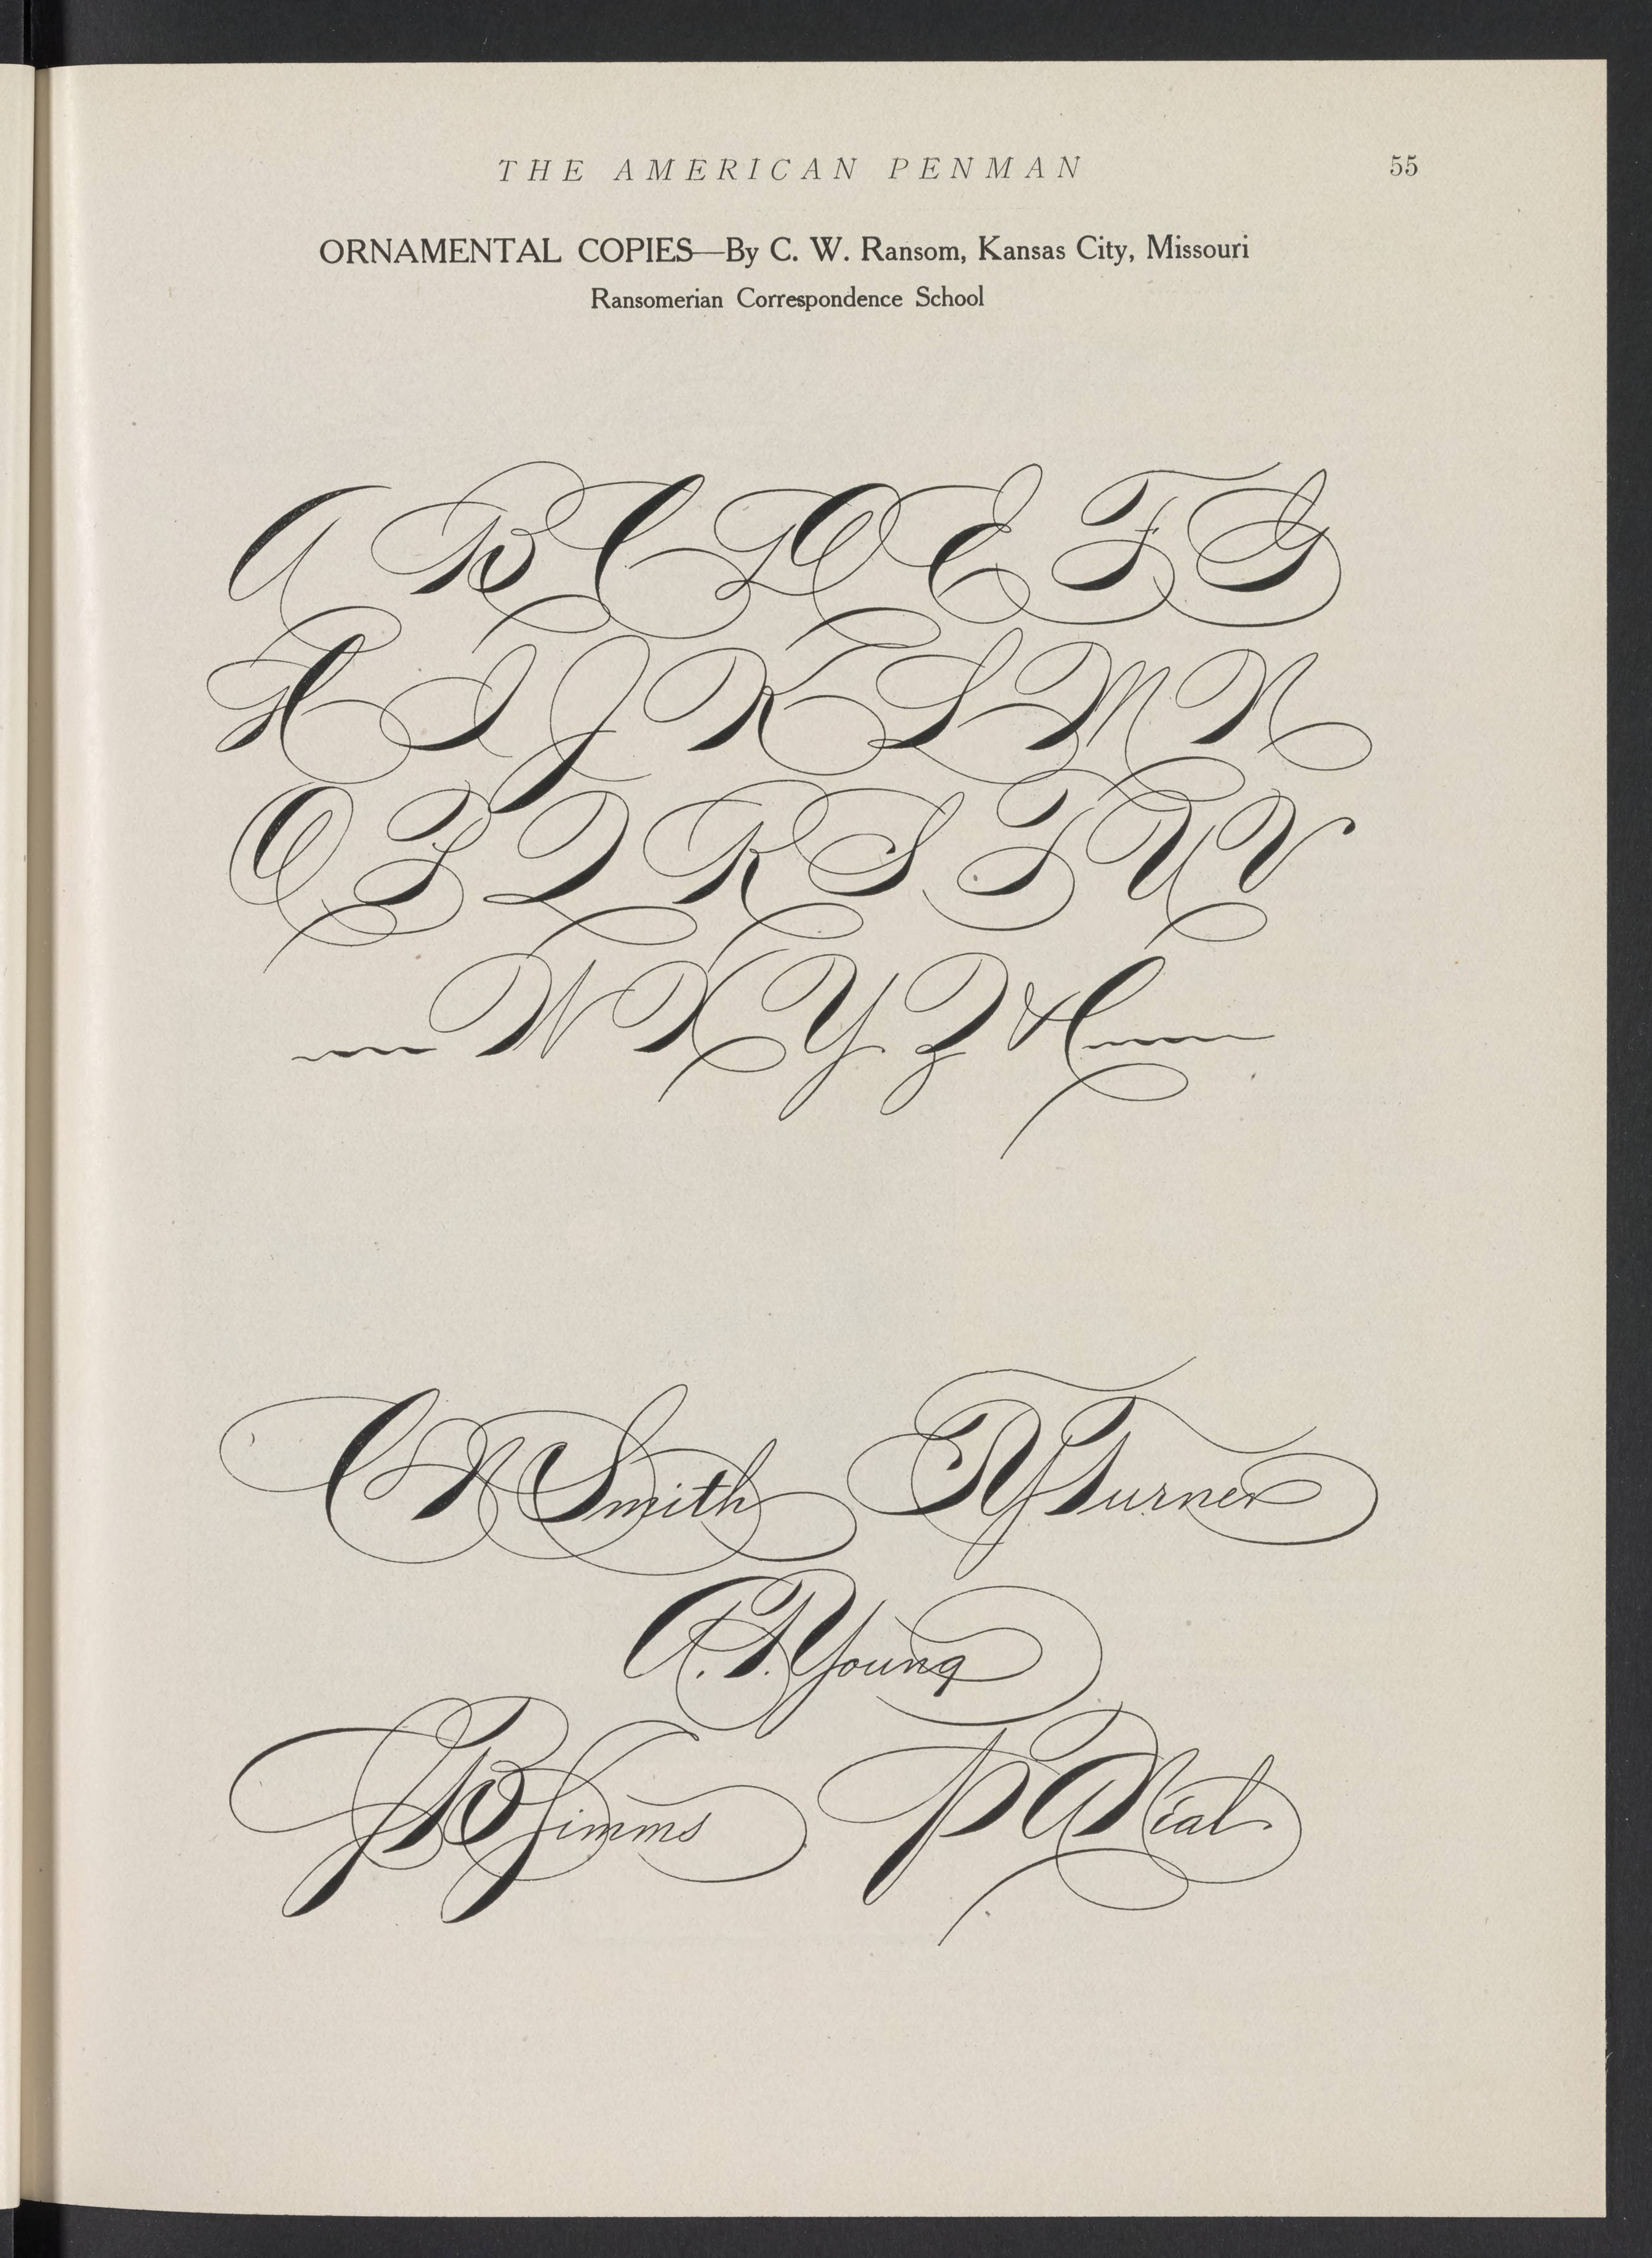 THE AMERICAN PENMAN 55
ORNAMENTAL COPIES—By C. W. Ransom, Kansas City, Missouri
Ransomerian Correspondence School
A B C D E F G
H I J K L M N
O P Q R S T U V
W X Y Z & C
C N Smith
Turner
A. T. Young
J B Simms
P O Neal